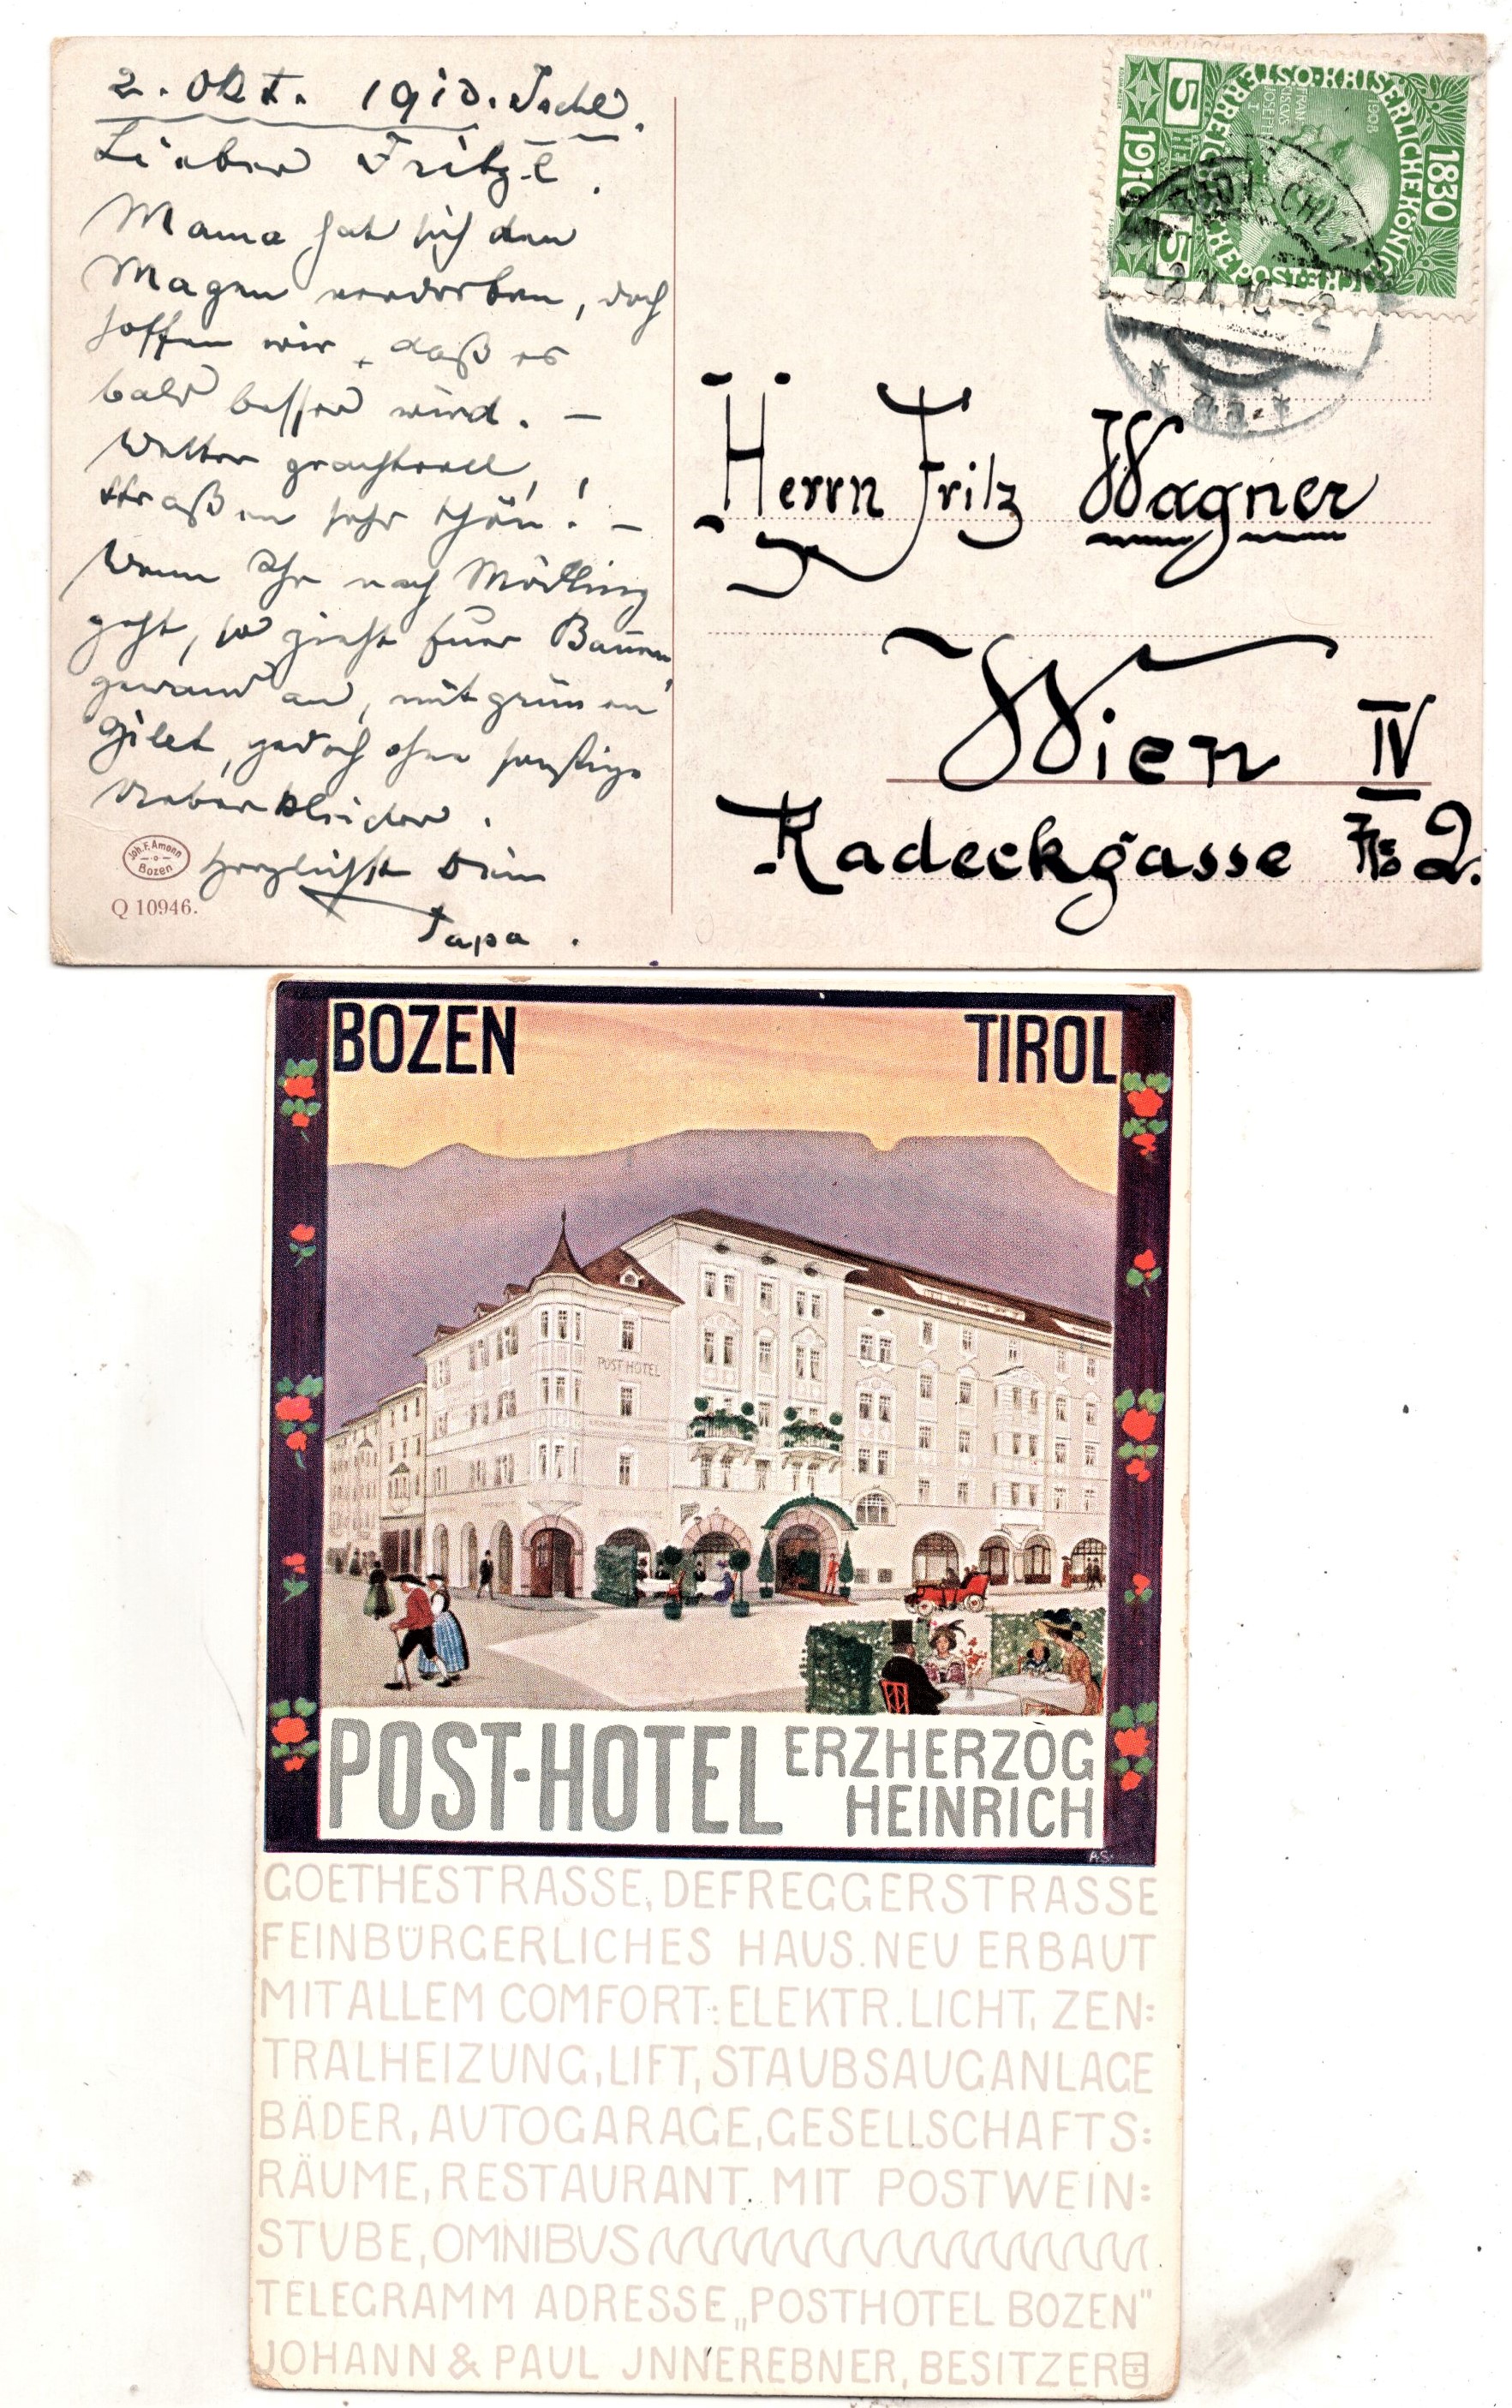 2. Okt. 1910. Ischl.
Lieber Fritzl.
Mama hat sich den
Magen verdorben, doch
hoffen wir, daß es
bald besser wird. —
Wetter prachtvoll,
Straßen sehr schön! —
Wenn Ihr nach Mödling
geht, so zieht Euer Bauern
gewand an, mit grünen
Gilet, jedoch ohne sonstige
Ueberkleider.
Herzlichst Dein
Papa.
Joh. F. Amonn
Bozen
Q 10946.
1830
1910
5 HELLER 5
1908
FRANCISCVS JOSEPH I
KAISERLICHE KÖNIGLICHE ÖSTERREICHISCHE POST
Herrn Fritz Wagner
Wien IV
Radeckgasse No 2.
BOZEN TIROL
POST HOTEL
POST-HOTEL ERZHERZOG
HEINRICH
A.S.
GOETHESTRASSE, DEFREGGERSTRASSE
FEINBÜRGERLICHES HAUS. NEU ERBAUT
MIT ALLEM COMFORT: ELEKTR. LICHT, ZEN:
TRALHEIZUNG, LIFT, STAUBSAUGANLAGE
BÄDER, AUTOGARAGE, GESELLSCHAFTS:
RÄUME, RESTAURANT MIT POSTWEIN:
STUBE, OMNIBUS
TELEGRAMM ADRESSE „POSTHOTEL BOZEN"
JOHANN & PAUL JNNEREBNER, BESITZER